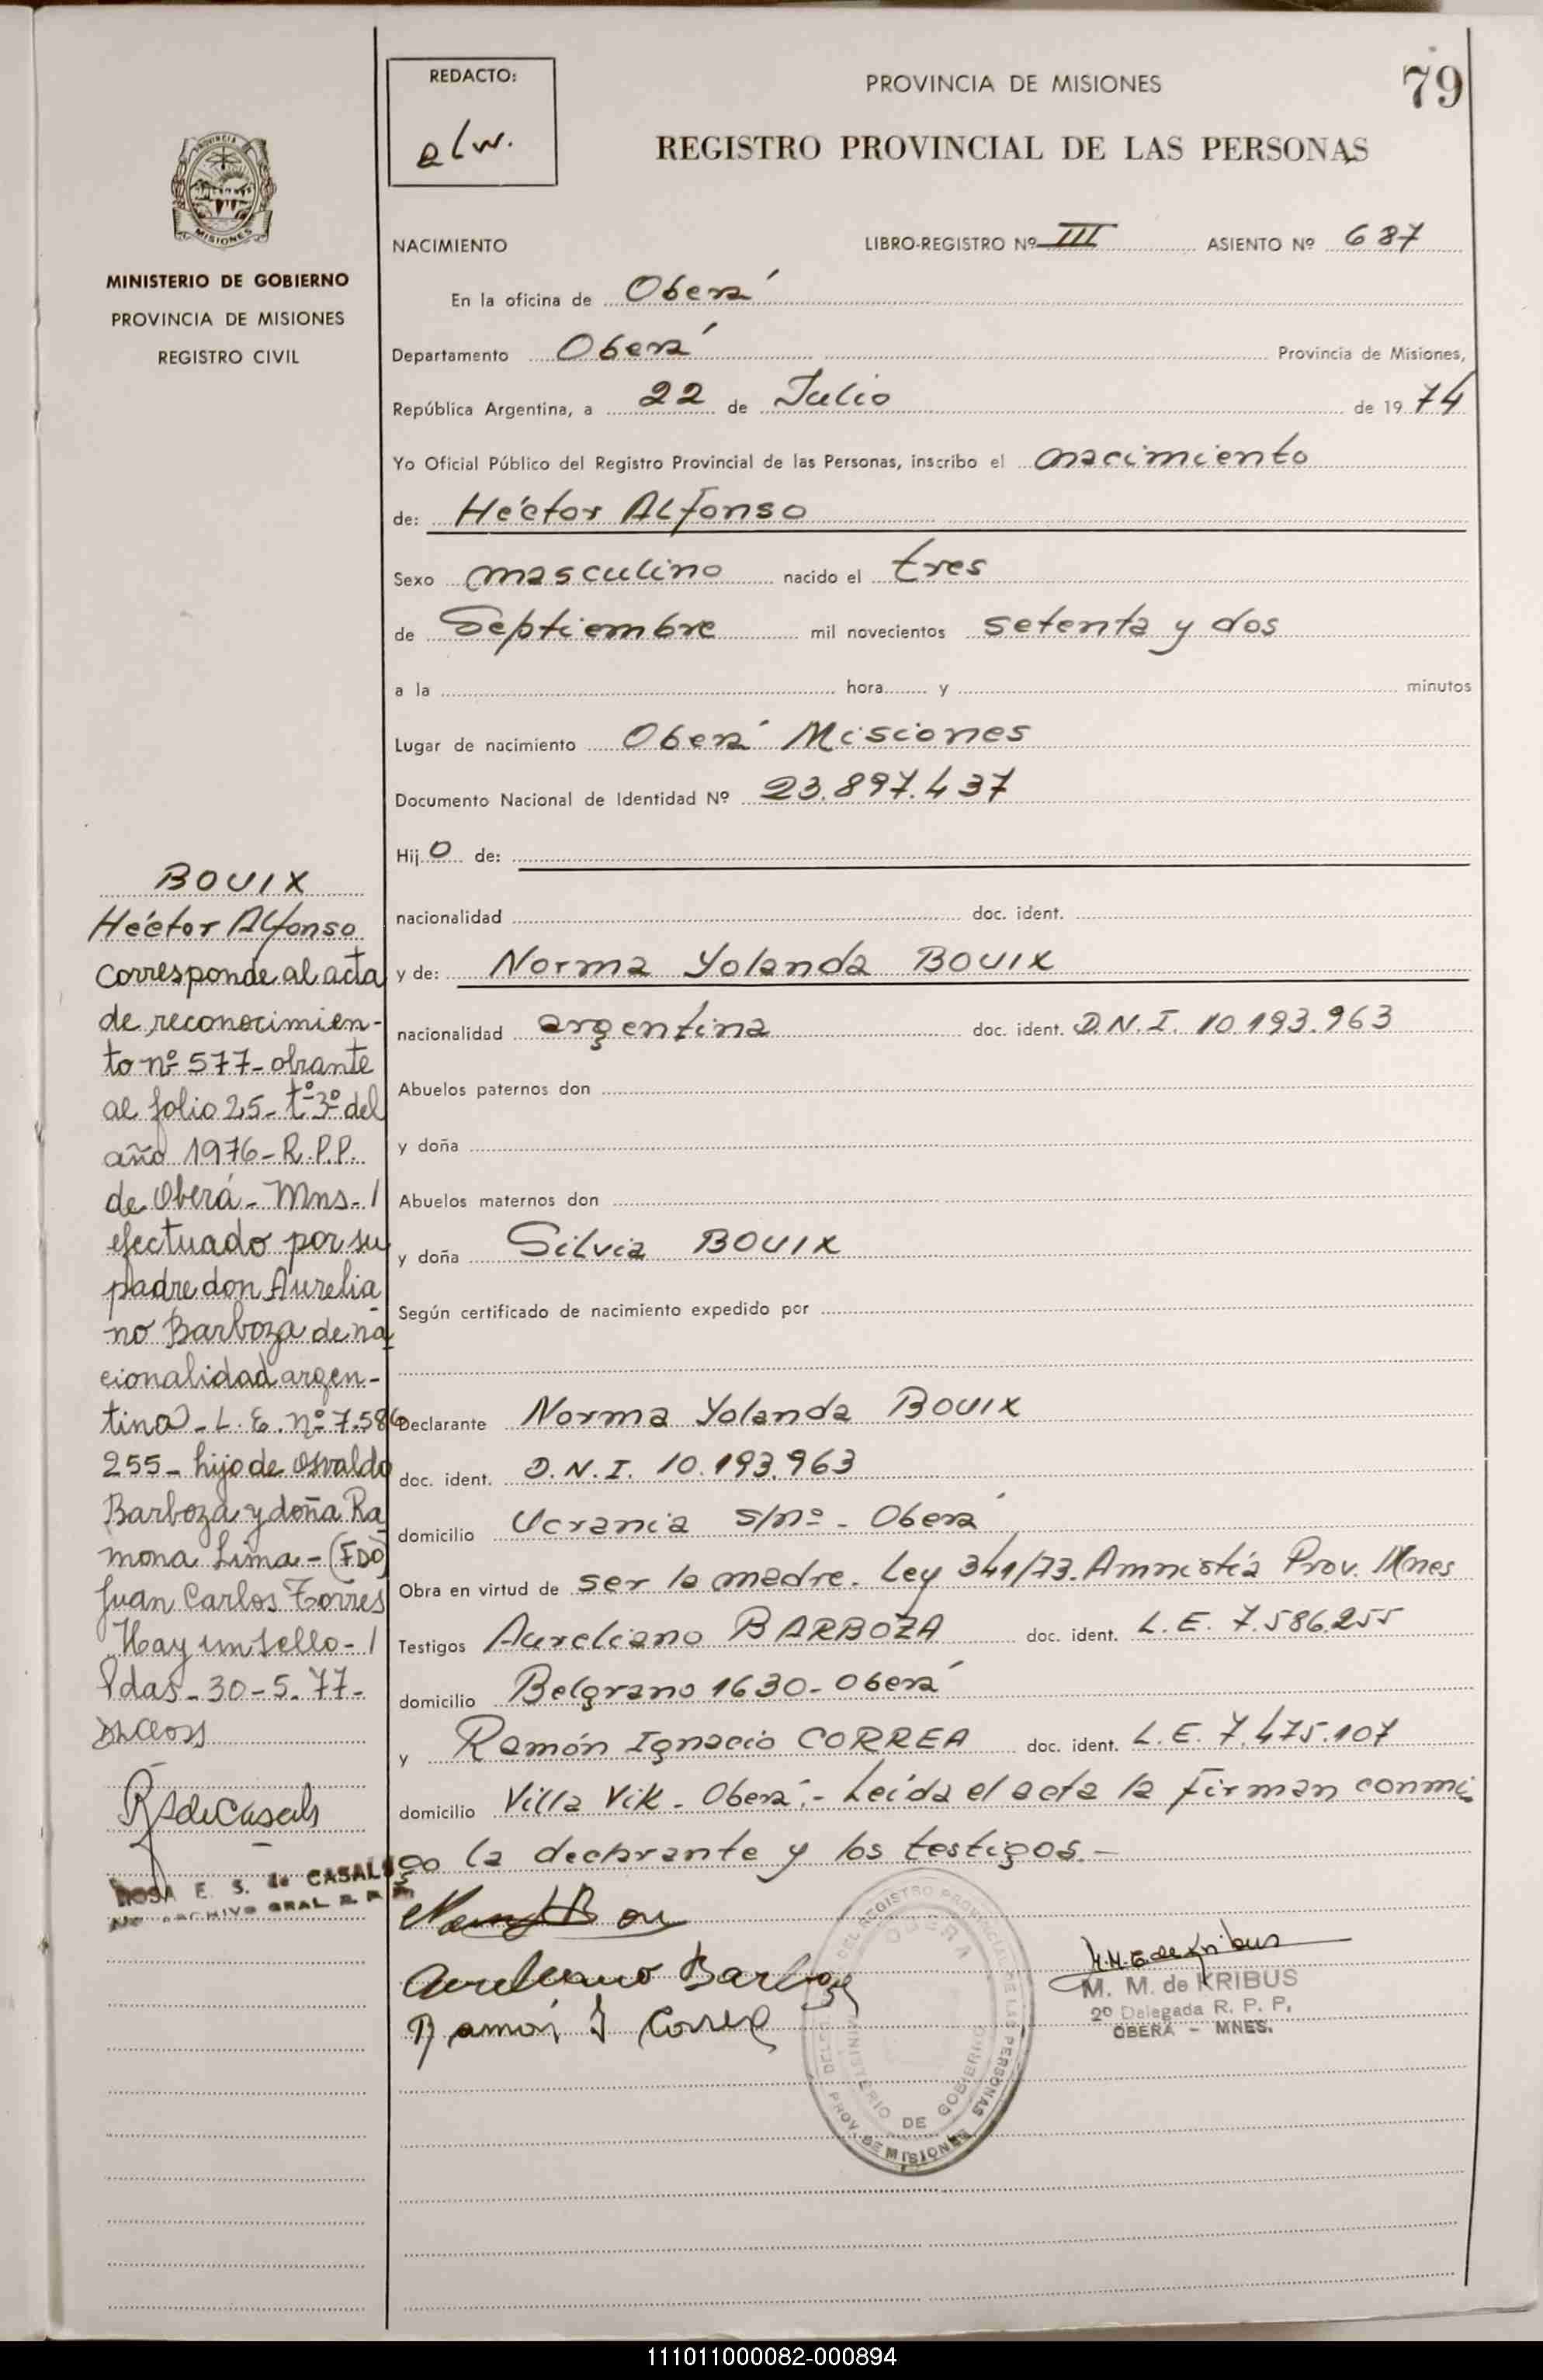 REDACTO:
elw.
PROVINCIA DE MISIONES
79
REGISTRO PROVINCIAL DE LAS PERSONAS
PROVINCIA DE
MISIONES
MINISTERIO DE GOBIERNO
PROVINCIA DE MISIONES
REGISTRO CIVIL
NACIMIENTO LIBRO-REGISTRO Nº III ASIENTO Nº 687
En la oficina de Oberá
Departamento Oberá Provincia de Misiones,
República Argentina, a 22 de Julio de 1974
Yo Oficial Público del Registro Provincial de las Personas, inscribo el nacimiento
de: Héctor Alfonso
Sexo masculino nacido el tres
de Septiembre mil novecientos setenta y dos
a la hora y minutos
Lugar de nacimiento Oberá Misiones
Documento Nacional de Identidad Nº 23.897.437
Hijo de:
nacionalidad doc. ident.
y de: Norma Yolanda BOUIX
nacionalidad argentina doc. ident. D.N.I. 10.193.963
Abuelos paternos don
y doña
Abuelos maternos don
y doña Silvia BOUIX
Según certificado de nacimiento expedido por
Declarante Norma Yolanda BOUIX
doc. ident. D.N.I. 10.193.963
domicilio Ucrania s/nº - Oberá
Obra en virtud de ser la madre. Ley 341/73. Amnistía Prov. Mnes
Testigos Aureliano BARBOZA doc. ident. L.E. 7.586.255
domicilio Belgrano 1630 - Oberá
y Ramón Ignacio CORREA doc. ident. L.E. 7.475.107
domicilio Villa Vik - Oberá.- Leída el acta la firman conmi
go la declarante y los testigos.-
Aureliano Barboza
Ramón I Correa
M. M. de KRIBUS
2º Delegada R. P. P.
OBERA - MNES.
DEL REGISTRO PROVINCIAL DE LAS PERSONAS
OBERA
MINISTERIO DE GOBIERNO
PROV. DE MISIONES
BOUIX
Héctor Alfonso
Corresponde al acta
de reconocimien-
to nº 577- obrante
al folio 25- tº 3º del
año 1976- R.P.P.
de Oberá- Mns-/
efectuado por su
padre don Aurelia
no Barboza de na
cionalidad argen-
tina- L. E. nº 7.586
255- hijo de Osvaldo
Barboza y doña Ra
mona Lima- (FDO)
Juan Carlos Torres
Hay un sello- /
Pdas- 30-5-77-
R S de Casals
ROSA E. S. de CASALS
ARCHIVO GRAL R. P. P.
111011000082-000894